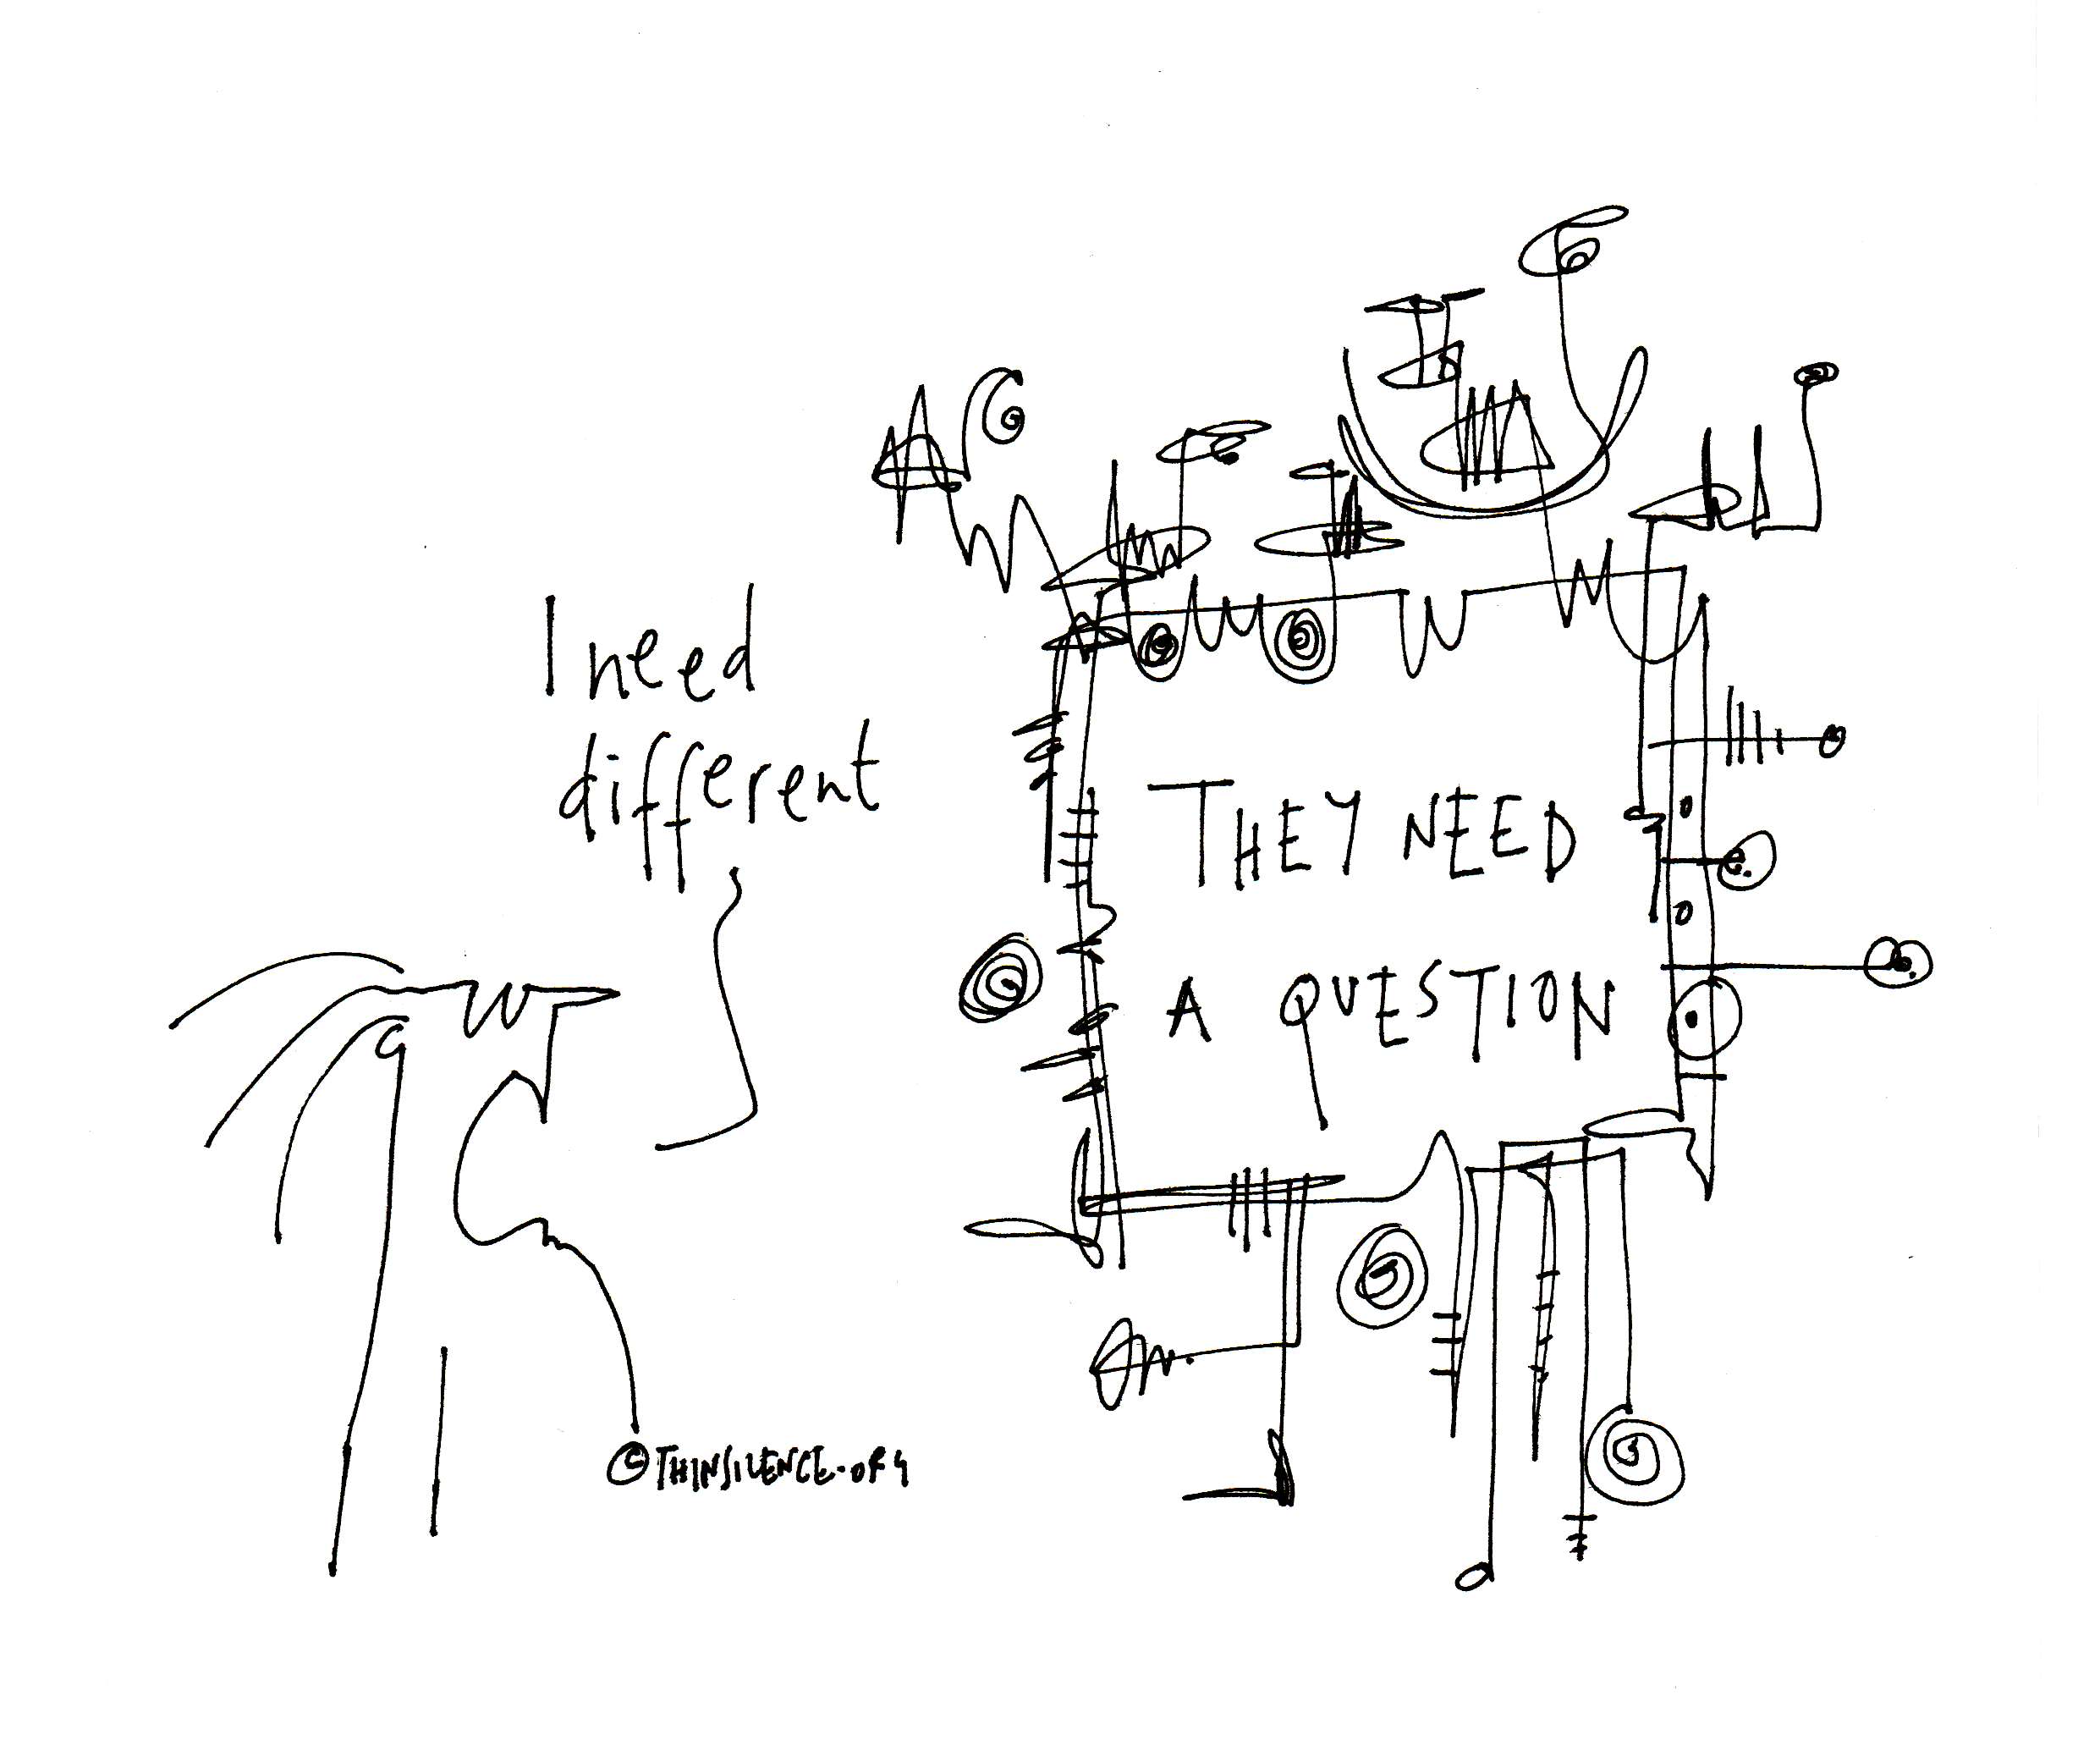 I need
different
THEY NEED
A QUESTION
©THINSILENCE.org